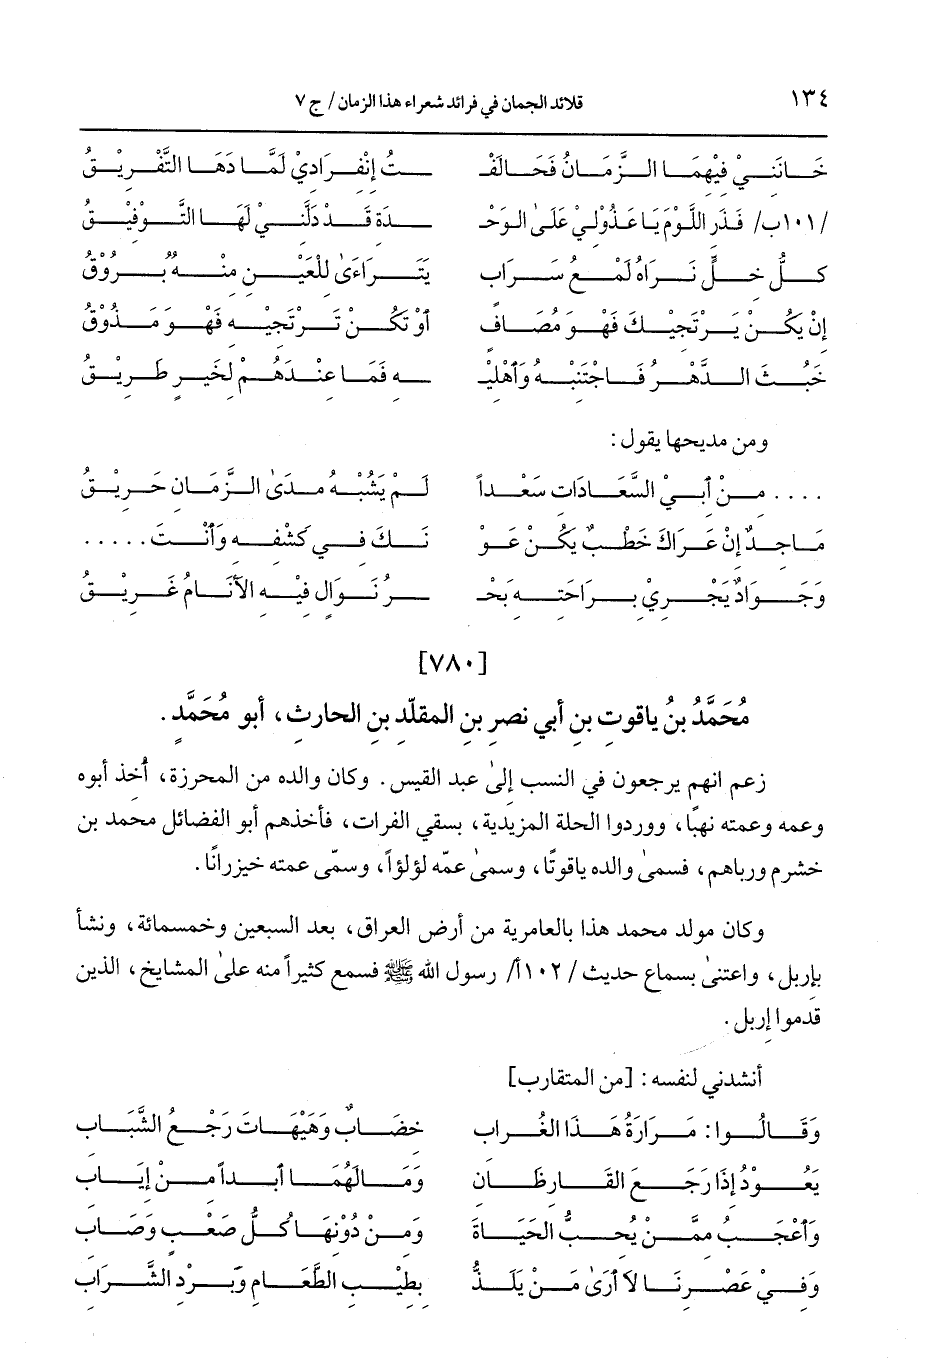 ١٣٤ قلائد الجمان في فرائد شعراء هذا الزمان / ج ٧
خَانَنِيْ فِيْهِمَا الزَّمَانُ فَحَالَفْـ ـتُ إنْفِرَادِيْ لَمَّا دَهَا التَّفْرِيْقُ
/١٠١ب/ فَذَرِ اللَّوْمَ يَا عَذُوْلِيْ عَلَىٰ الوَحْـ ـدَةِ قَدْ دَلَّنِيْ لَهَا التَّوْفِيْقُ
كُلُّ خِلٍّ نَرَاهُ لَمْعُ سَرَابٍ يَتَرَاءَىٰ لِلْعَيْنِ مِنْهُ بُرُوْقُ
إنْ يَكُنْ يَرْتَجِيْكَ فَهْوَ مُصَافٍ أوْ تَكُنْ تَرْتَجِيْهِ فَهْوَ مَذُوْقُ
خَبُثَ الدَّهْرُ فَاجْتَنِبْهُ وَأهْلِيْـ ـهِ فَمَا عِنْدَهُمْ لِخَيْرٍ طَرِيْقُ
ومن مديحها يقول:
.... مِنْ أبِيْ السَّعَادَاتِ سَعْداً لَمْ يَشُبْهُ مَدَىٰ الزَّمَانِ حَرِيْقُ
مَاجِدٌ إنْ عَرَاكَ خَطْبٌ يَكُنْ عَوْ نَكَ فِي كَشْفِهِ وَأنْتَ .....
وَجَوَادٌ يَجْرِيْ بِرَاحَتِهِ بَحْـ ـرُ نَوَالٍ فِيْهِ الأنَامُ غَرِيْقُ
[٧٨٠]
مُحَمَّدُ بنُ ياقوتِ بنِ أبي نصرِ بنِ المقلّدِ بنِ الحارثِ، أبو مُحَمَّدٍ.
زعم انهم يرجعون في النسب إلىٰ عبد القيس. وكان والده من المحرزة، أُخِذ أبوه
وعمه وعمته نهبًا، ووردوا الحلة المزيدية، بسقي الفرات، فأخذهم أبو الفضائل محمد بن
خشرم ورباهم، فسمىٰ والده ياقوتًا، وسمىٰ عمّه لؤلؤاً، وسمّى عمته خيزرانًا.
وكان مولد محمد هذا بالعامرية من أرض العراق، بعد السبعين وخمسمائة، ونشأ
بإربل، واعتنىٰ بسماع حديث /١٠٢أ/ رسول الله ﷺ فسمع كثيراً منه علىٰ المشايخ، الذين
قدموا إربل.
أنشدني لنفسه: [من المتقارب]
وَقَالُوا: مَرَارَةُ هَذَا الغُرَابِ خِضَابٌ وَهَيْهَاتَ رَجْعِ الشَّبَابِ
يَعُوْدُ إذَا رَجَعَ القَارِظَانِ وَمَا لَهُمَا أبَداً مِنْ إيَابِ
وَأعْجَبُ مِمَّنْ يُحِبُّ الحَيَاةَ وَمِنْ دُوْنِهَا كُلُّ صَعْبٍ وَصَابِ
وَفِيْ عَصْرِنَا لاَ أرَىٰ مَنْ يَلَذُّ بِطِيْبِ الطَّعَامِ وَبَرْدِ الشَّرَابِ